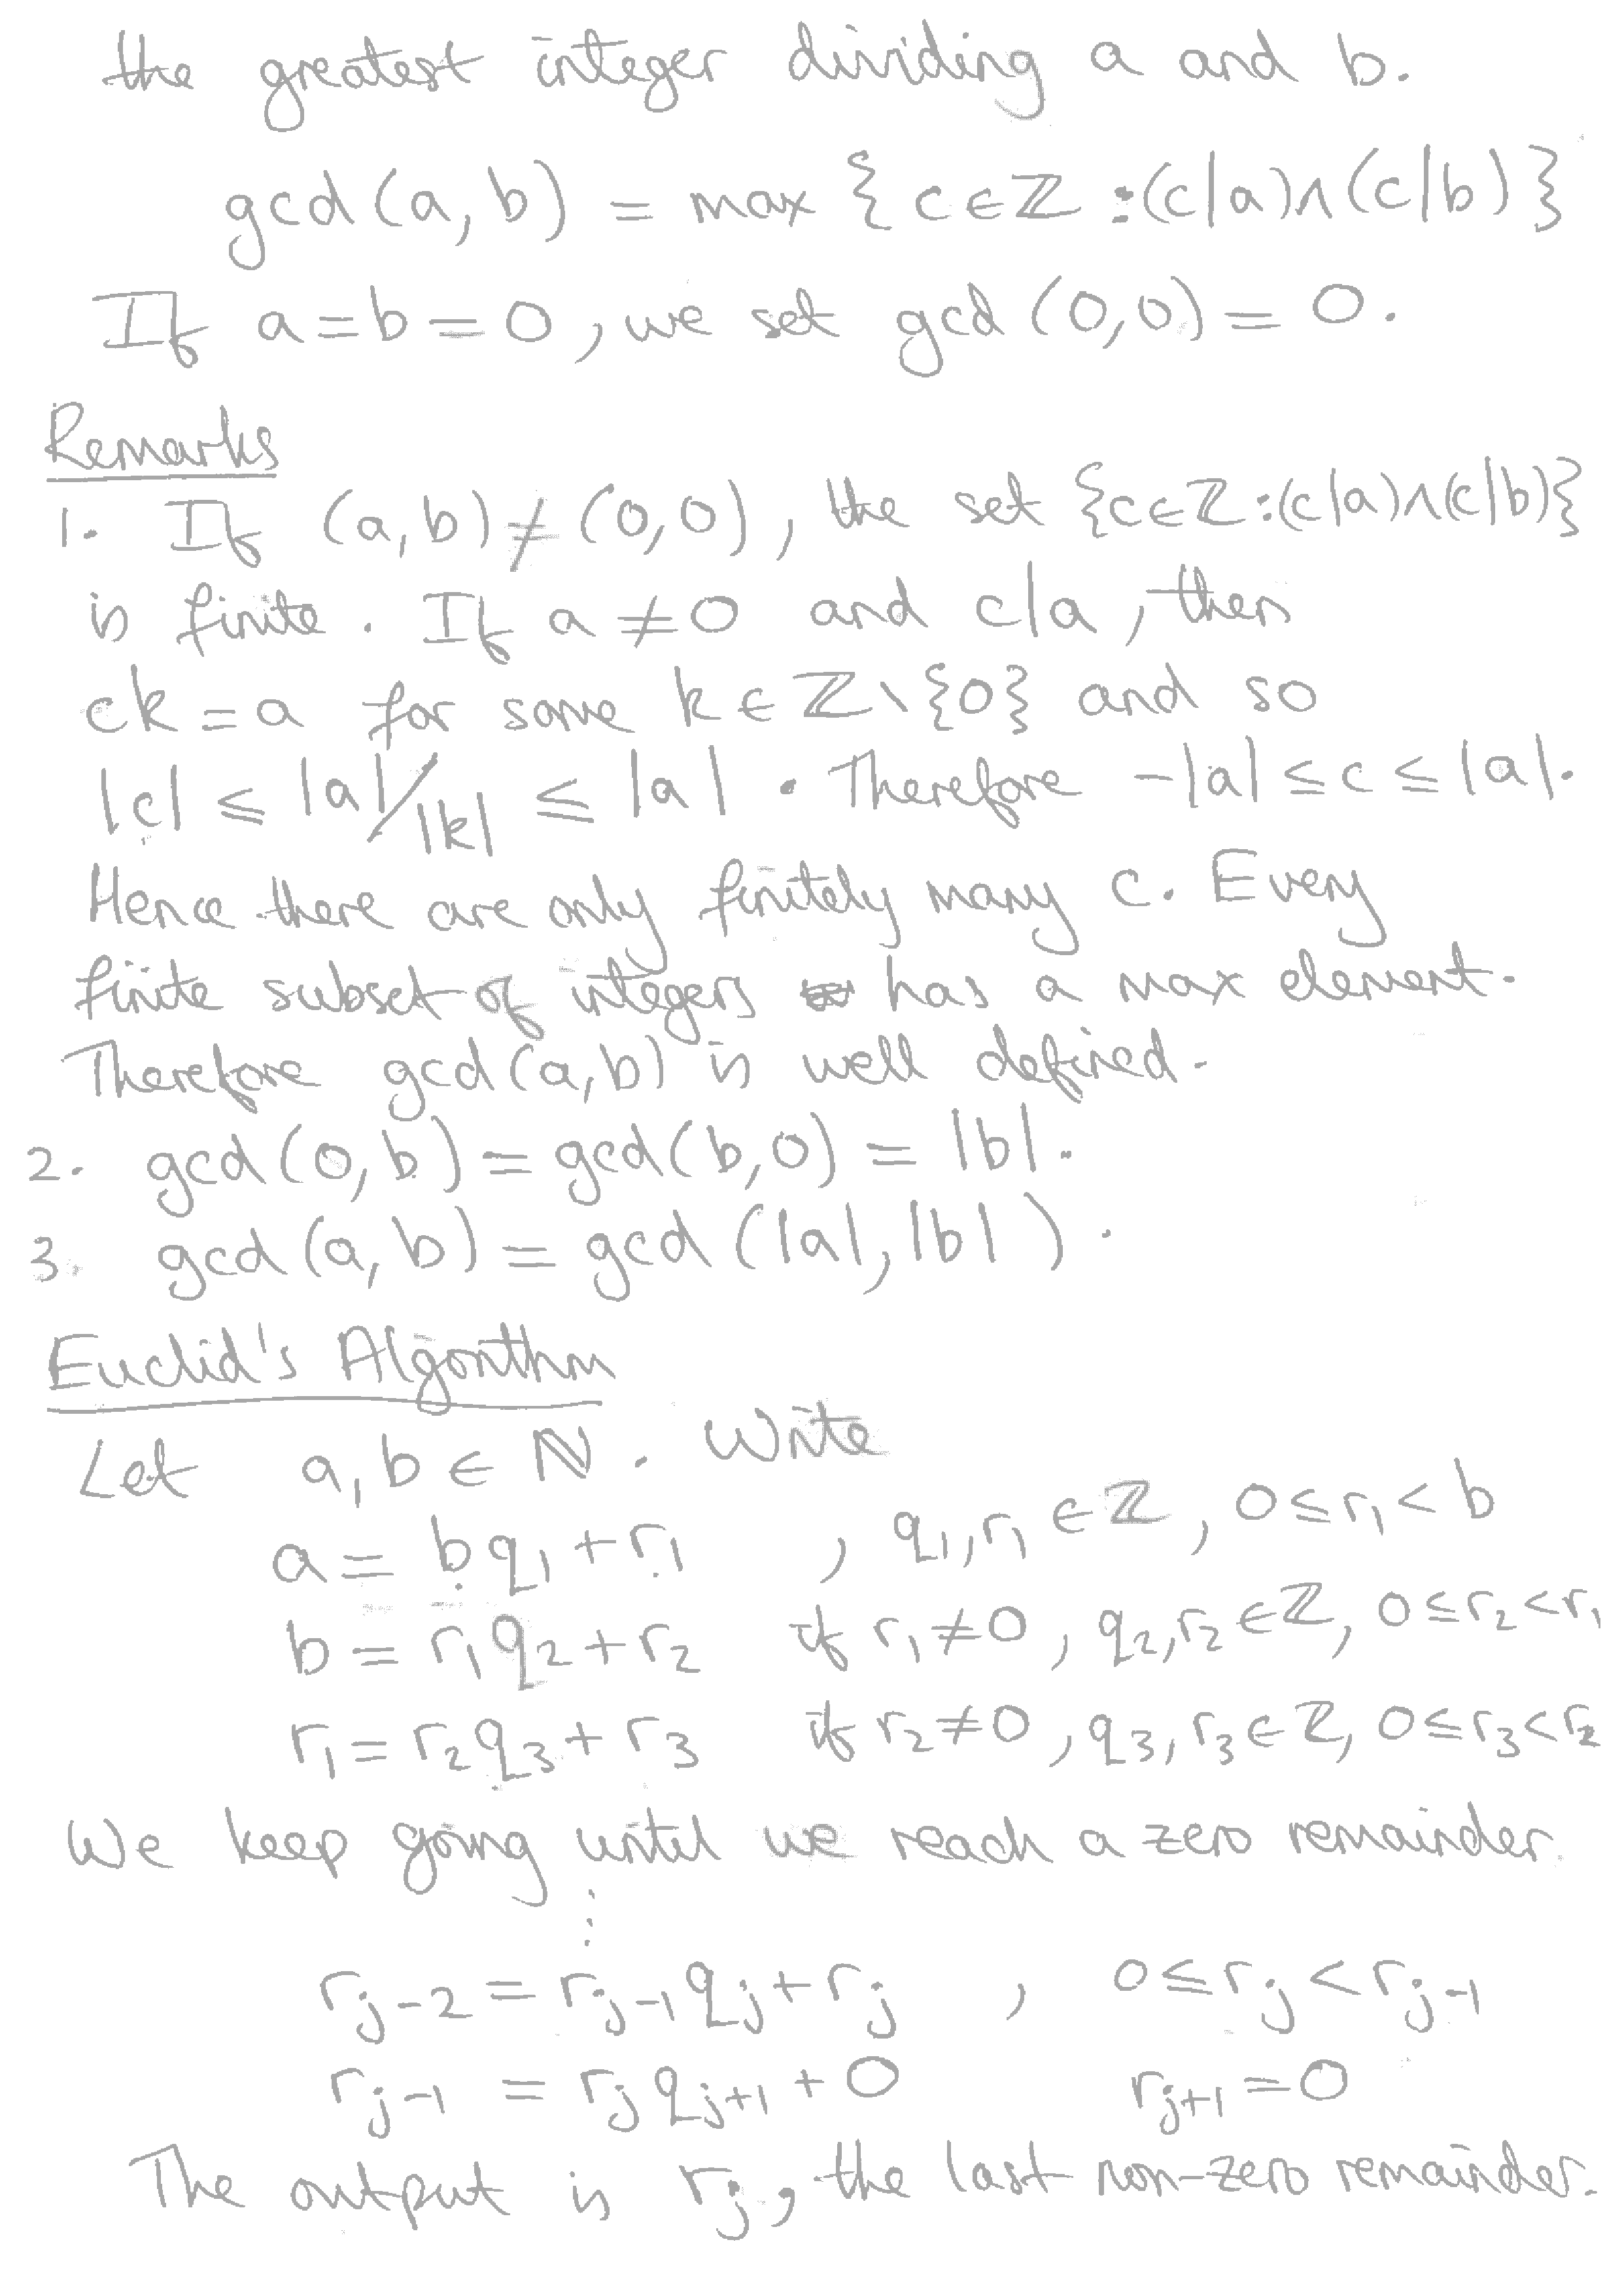 the greatest integer dividing a and b.
gcd(a,b) = max {c∈ℤ:(c|a)∧(c|b)}
If a=b=0, we set gcd(0,0)=0.
Remarks
1. If (a,b)≠(0,0), the set {c∈ℤ:(c|a)∧(c|b)}
is finite. If a≠0 and c|a, then
ck=a for some k∈ℤ\{0} and so
|c| ≤ |a|/|k| ≤ |a|. Therefore -|a|≤c≤|a|.
Hence there are only finitely many c. Every
finite subset of integers has a max element.
Therefore gcd(a,b) is well defined.
2. gcd(0,b)=gcd(b,0)=|b|.
3. gcd(a,b)=gcd(|a|,|b|).
Euclid's Algorithm
Let a,b∈ℕ. Write
a=bq₁+r₁ , q₁,r₁∈ℤ, 0≤r₁<b
b=r₁q₂+r₂ if r₁≠0, q₂,r₂∈ℤ, 0≤r₂<r₁
r₁=r₂q₃+r₃ if r₂≠0, q₃,r₃∈ℤ, 0≤r₃<r₂
We keep going until we reach a zero remainder.
⋮
r_{j-2}=r_{j-1}q_j+r_j , 0≤r_j<r_{j-1}
r_{j-1}=r_jq_{j+1}+0 r_{j+1}=0
The output is r_j, the last non-zero remainder.